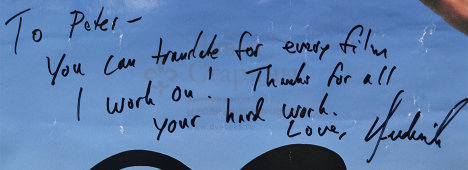 To Peter-
You can translate for every film
I work on! Thanks for all
your hard work.
Love,